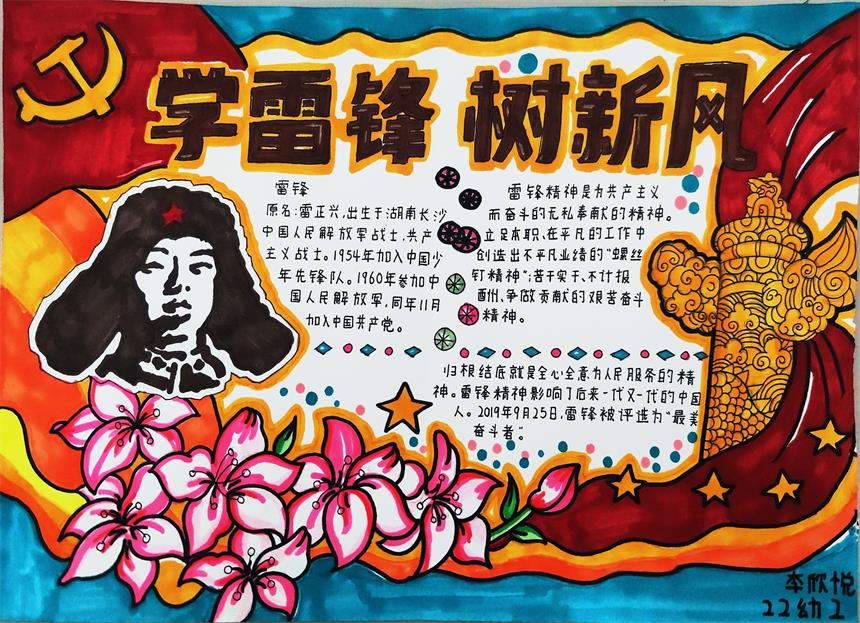 学雷锋 树新风
雷锋
原名:雷正兴,出生于湖南长沙
中国人民解放军战士,共产
主义战士。1954年加入中国少
年先锋队。1960年参加中
国人民解放军,同年11月
加入中国共产党。
雷锋精神是为共产主义
而奋斗的无私奉献的精神。
立足本职、在平凡的工作中
创造出不平凡业绩的“螺丝
钉精神”;苦干实干、不计报
酬、争做贡献的艰苦奋斗
精神。
归根结底就是全心全意为人民服务的精
神。雷锋精神影响了后来一代又一代的中国
人。2019年9月25日,雷锋被评选为“最美
奋斗者”。
李欣悦
22幼2